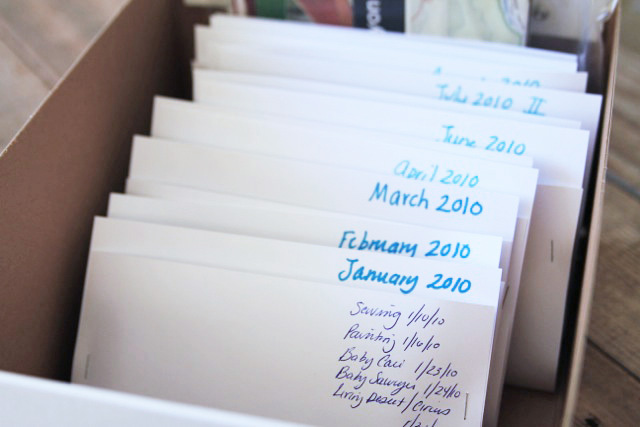 July 2010 II
June 2010
April 2010
March 2010
February 2010
January 2010
Sewing 1/10/10
Painting 1/16/10
Baby Caci 1/23/10
Baby Sawyer 1/24/10
Living Desert/Circus